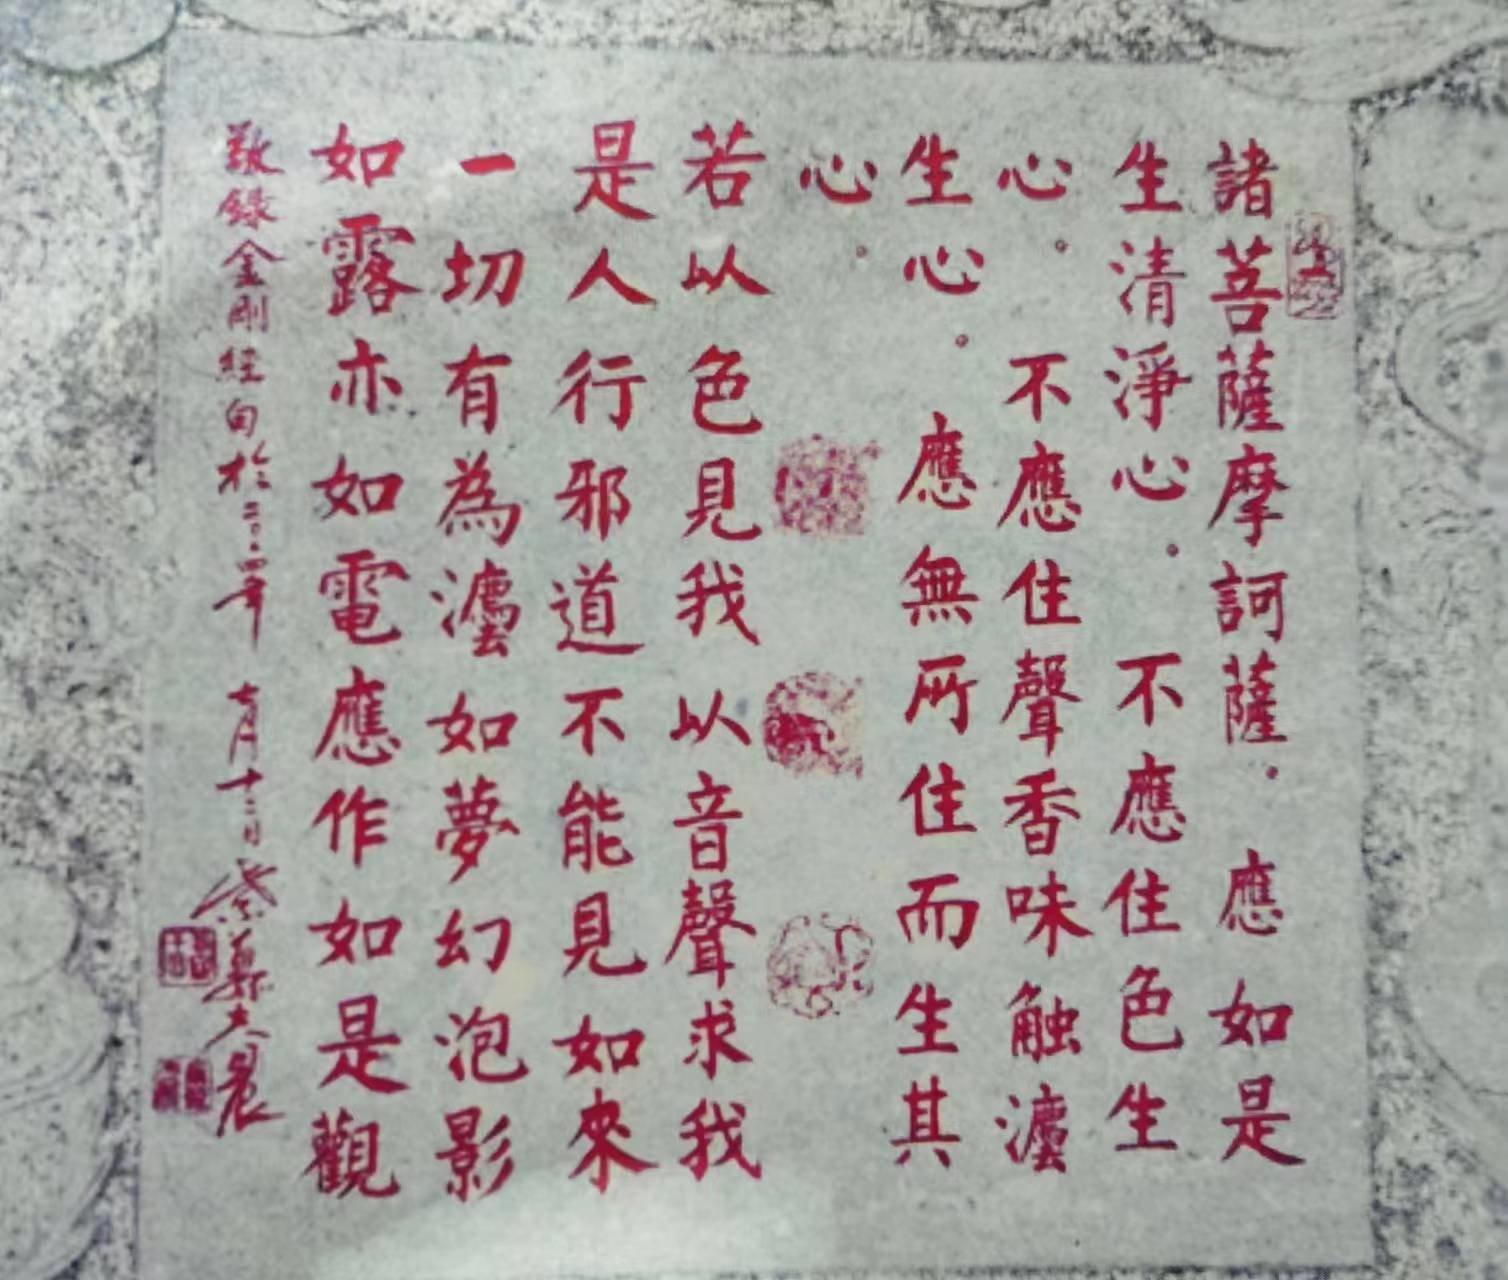 諸菩薩摩訶薩．應如是
生清淨心．不應住色生
心。不應住聲香味觸灋
生心。應無所住而生其
心。
若以色見我以音聲求我
是人行邪道不能見如來
一切有為灋如夢幻泡影
如露亦如電應作如是觀
敬錄金剛經句於二〇〇四年七月十二日